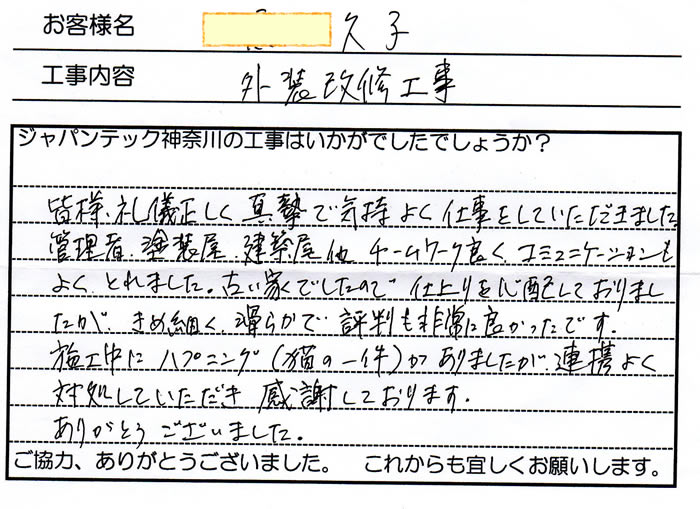 お客様名 久子
工事内容 外装改修工事
ジャパンテック神奈川の工事はいかがでしたでしょうか？
皆様、礼儀正しく真摯で気持よく仕事をしていただきました
管理者、塗装屋、建築屋他 チームワーク良く、コミュニケーションも
よく、とれました。古い家でしたので 仕上りを心配しておりまし
たが、きめ細く、滑らかで 評判も非常に良かったです。
施工中に ハプニング（猫の一件）がありましたが、連携よく
対処していただき 感謝しております。
ありがとうございました。
ご協力、ありがとうございました。 これからも宜しくお願いします。